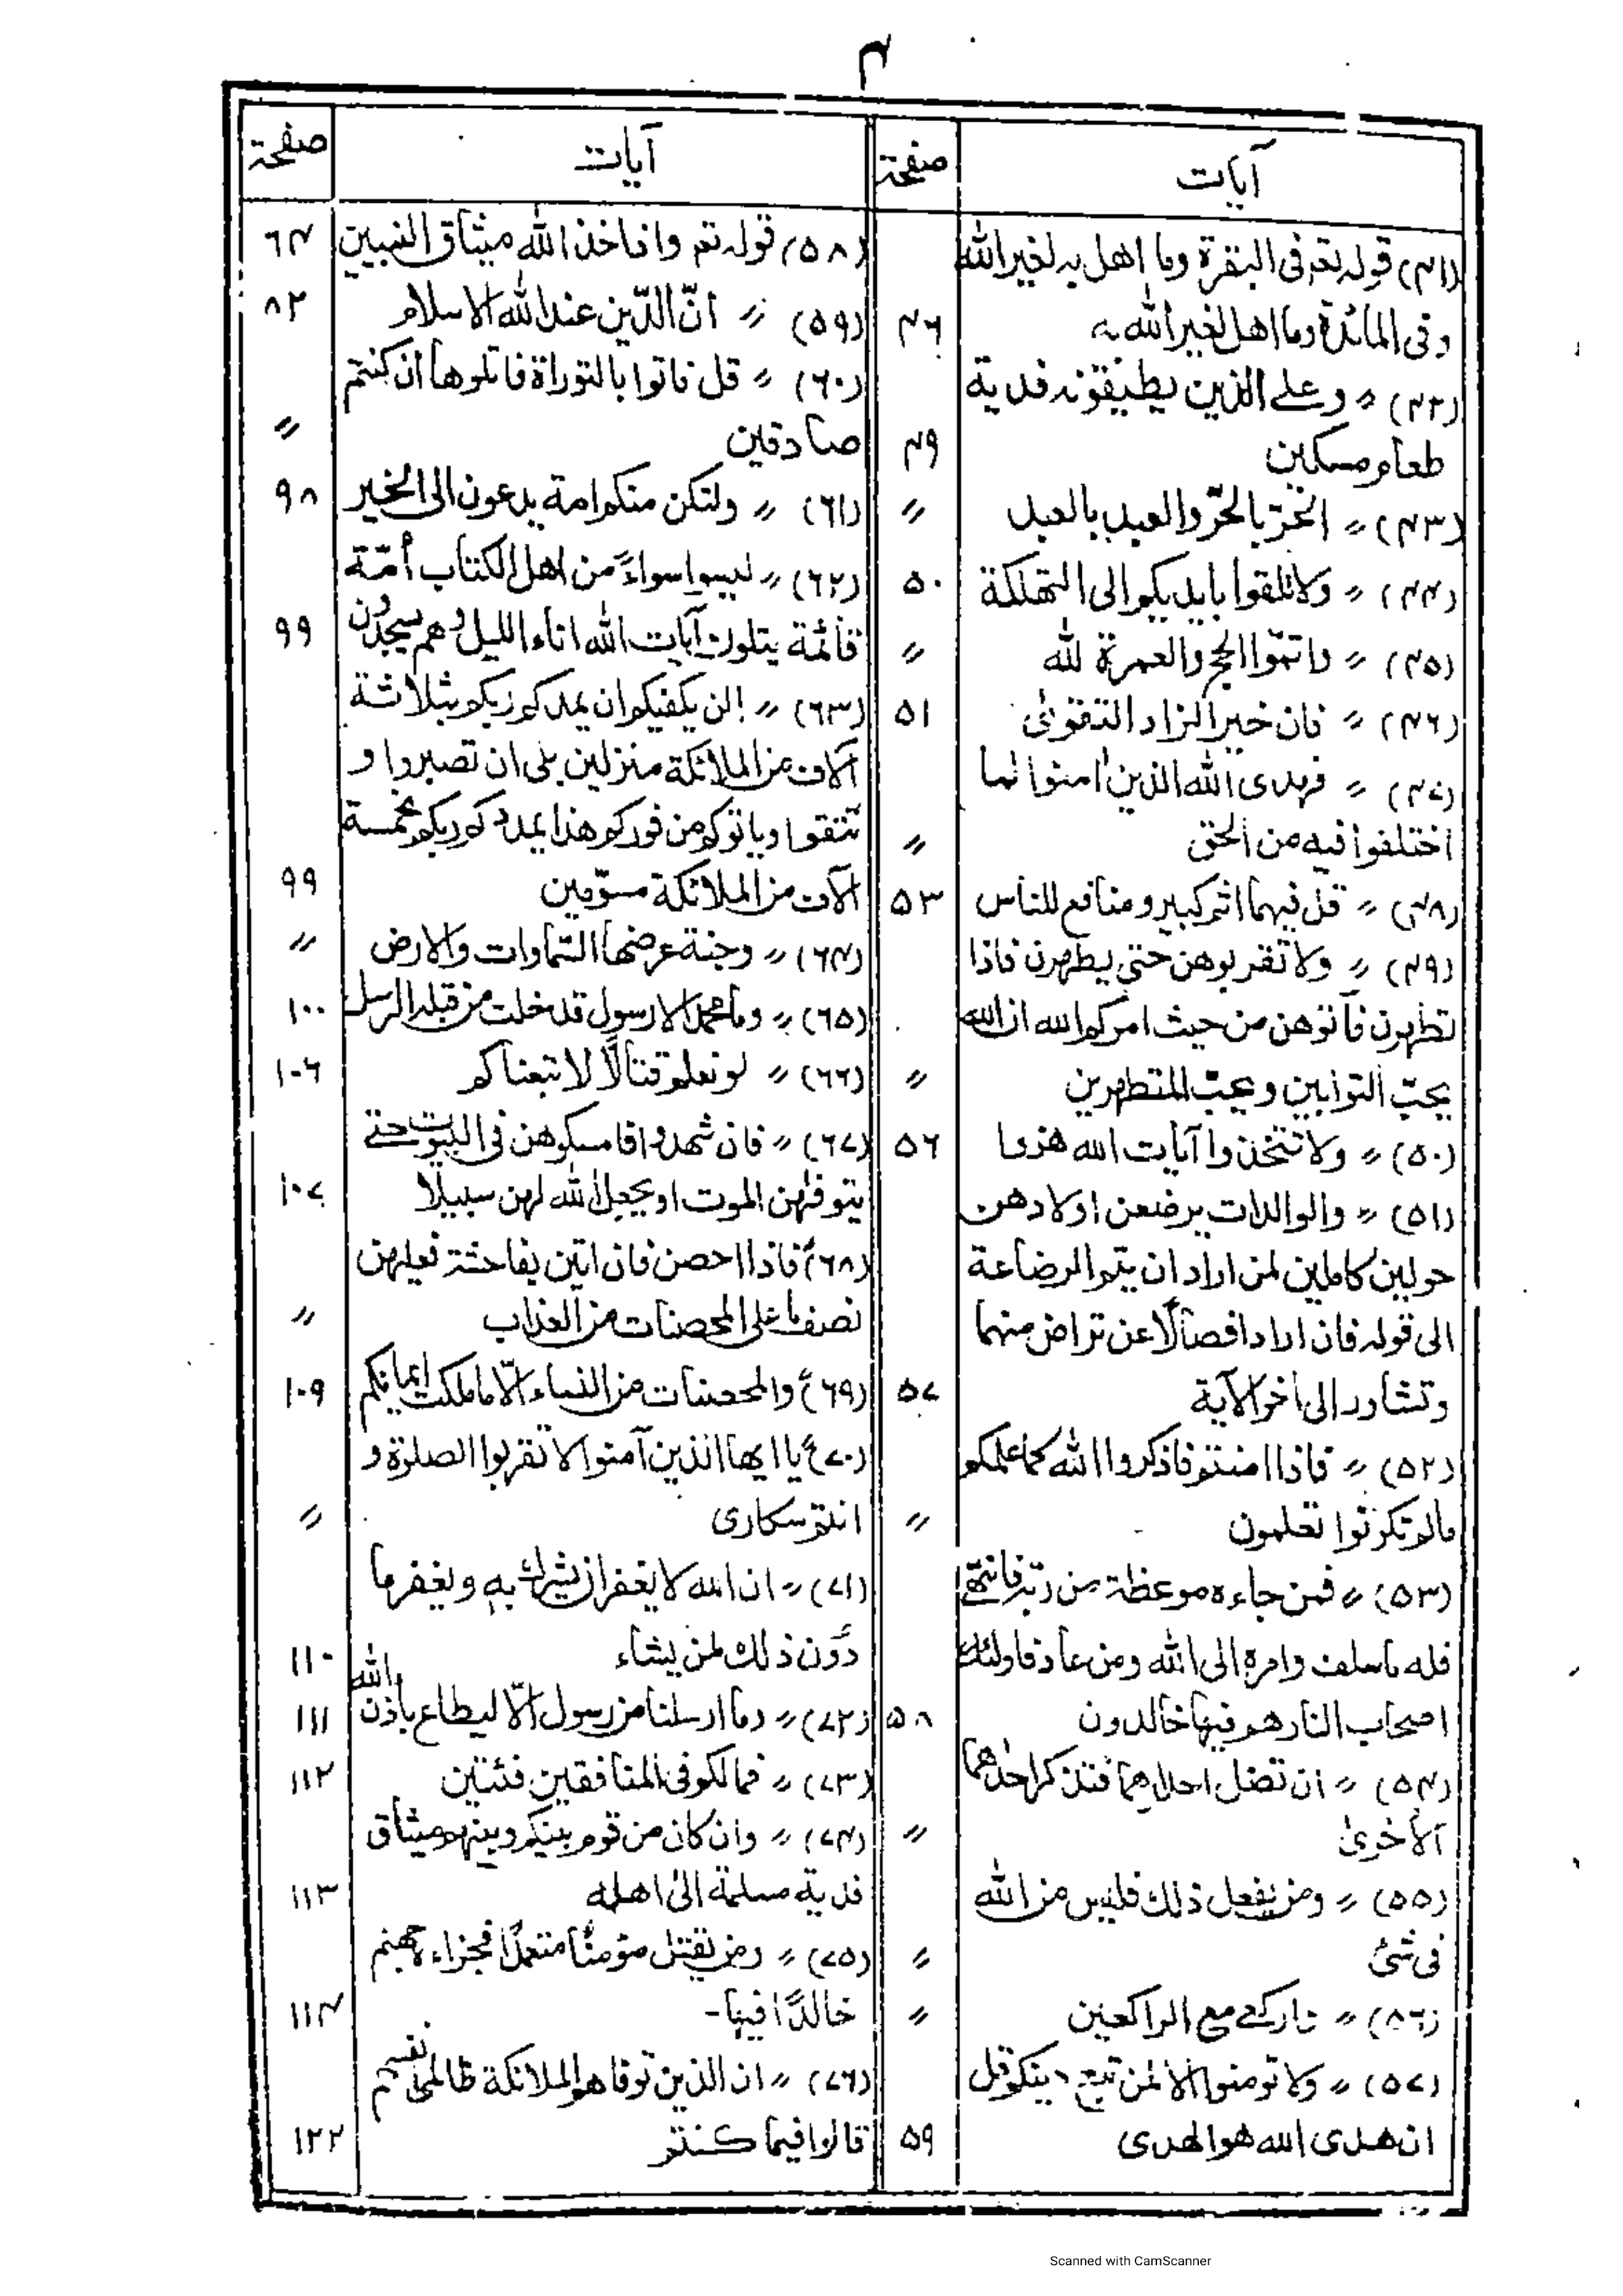 ۴
آيات صفحة
(۴۱) قوله تعـ فى البقرة وما اهل به لغير الله
وفى المائدة وما اهل لغير الله به ۴۶
(۴۲) 〃 وعلى الذين يطيقونه فدية
طعام مسكين ۴۹
(۴۳) 〃 الحرّ بالحرّ والعبد بالعبد 〃
(۴۴) 〃 ولا تلقوا بايديكم الى التهلكة ۵۰
(۴۵) 〃 واتمّوا الحج والعمرة لله 〃
(۴۶) 〃 فان خير الزاد التقوىٰ ۵۱
(۴۷) 〃 فهدى الله الذين اٰمنوا لما
اختلفوا فيه من الحق 〃
(۴۸) 〃 قل فيهما اثم كبير ومنافع للناس ۵۳
(۴۹) 〃 ولا تقربوهن حتى يطهرن فاذا
تطهرن فأتوهن من حيث امركم الله ان الله
يحبّ التوابين ويحبّ المتطهرين 〃
(۵۰) 〃 ولا تتخذوا آيات الله هزوا ۵۶
(۵۱) 〃 والوالدات يرضعن اولادهن
حولين كاملين لمن اراد ان يتم الرضاعة
الى قوله فان ارادا فصالًا عن تراض منهما
وتشاور الى اٰخر الآية ۵۷
(۵۲) 〃 فاذا امنتم فاذكروا الله كما علمكم
مالم تكونوا تعلمون 〃
(۵۳) 〃 فمن جاءه موعظة من ربّه فانتهىٰ
فله ماسلف وامره الى الله ومن عاد فاولئك
اصحاب النار هم فيها خالدون ۵۸
(۵۴) 〃 ان تضل احداهما فتذكر احدٰهما
الأخرىٰ 〃
(۵۵) 〃 ومن يفعل ذلك فليس من الله
فى شئ 〃
(۵۶) 〃 واركعى مع الراكعين 〃
(۵۷) 〃 ولا تومنوا الا لمن تبع دينكم قل
ان هدى الله هو الهدى ۵۹
آيات صفحة
(۵۸) قوله تعـ واذا خذ الله ميثاق النبيين ۶۴
(۵۹) 〃 انّ الدّين عند الله الاسلام ۸۲
(۶۰) 〃 قل فاتوا بالتوراة فاتلوها ان كنتم
صادقين 〃
(۶۱) 〃 ولتكن منكم امة يدعون الى الخير ۹۸
(۶۲) 〃 ليسوا سواءً من اهل الكتاب أمّة
قائمة يتلون آيات الله اناء الليل وهم يسجدون ۹۹
(۶۳) 〃 الن يكفيكم ان يمدكم ربكم بثلاثة
آلاف من الملائكة منزلين بلى ان تصبروا و
تتقوا وياتوكم من فوركم هذا يمددكم ربكم بخمسة
آلاف من الملائكة مسوّمين ۹۹
(۶۴) 〃 وجنة عرضها السّماوات والارض 〃
(۶۵) 〃 وما محمد الا رسول قد خلت من قبله الرسل ۱۰۰
(۶۶) 〃 لو نعلم قتالًا لا تبعناكم ۱۰۶
(۶۷) 〃 فان شهدوا فامسكوهن فى البيوت حتى
يتوفٰهن الموت او يجعل الله لهن سبيلا ۱۰۷
(۶۸) 〃 فاذا احصن فان اتين بفاحشة فعليهن
نصف ما على المحصنات من العذاب 〃
(۶۹) 〃 والمحصنات من النساء الّا ما ملكت ايمانكم ۱۰۹
(۷۰) 〃 يا ايها الذين آمنوا لا تقربوا الصلوة و
انتم سكارى 〃
(۷۱) 〃 ان الله لا يغفر ان يشرك به ويغفر ما
دون ذلك لمن يشاء ۱۱۰
(۷۲) 〃 وما ارسلنا من رسول الّا ليطاع باذن الله ۱۱۱
(۷۳) 〃 فما لكم فى المنافقين فئتين ۱۱۲
(۷۴) 〃 وان كان من قوم بينكم وبينهم ميثاق
فدية مسلمة الىٰ اهله ۱۱۳
(۷۵) 〃 ومن يقتل مؤمنًا متعمدًا فجزاءه جهنم
خالدًا فيها - ۱۱۴
(۷۶) 〃 ان الذين توفاهم الملائكة ظالمى انفسهم
قالوا فيما كنتم ۱۲۲
Scanned with CamScanner